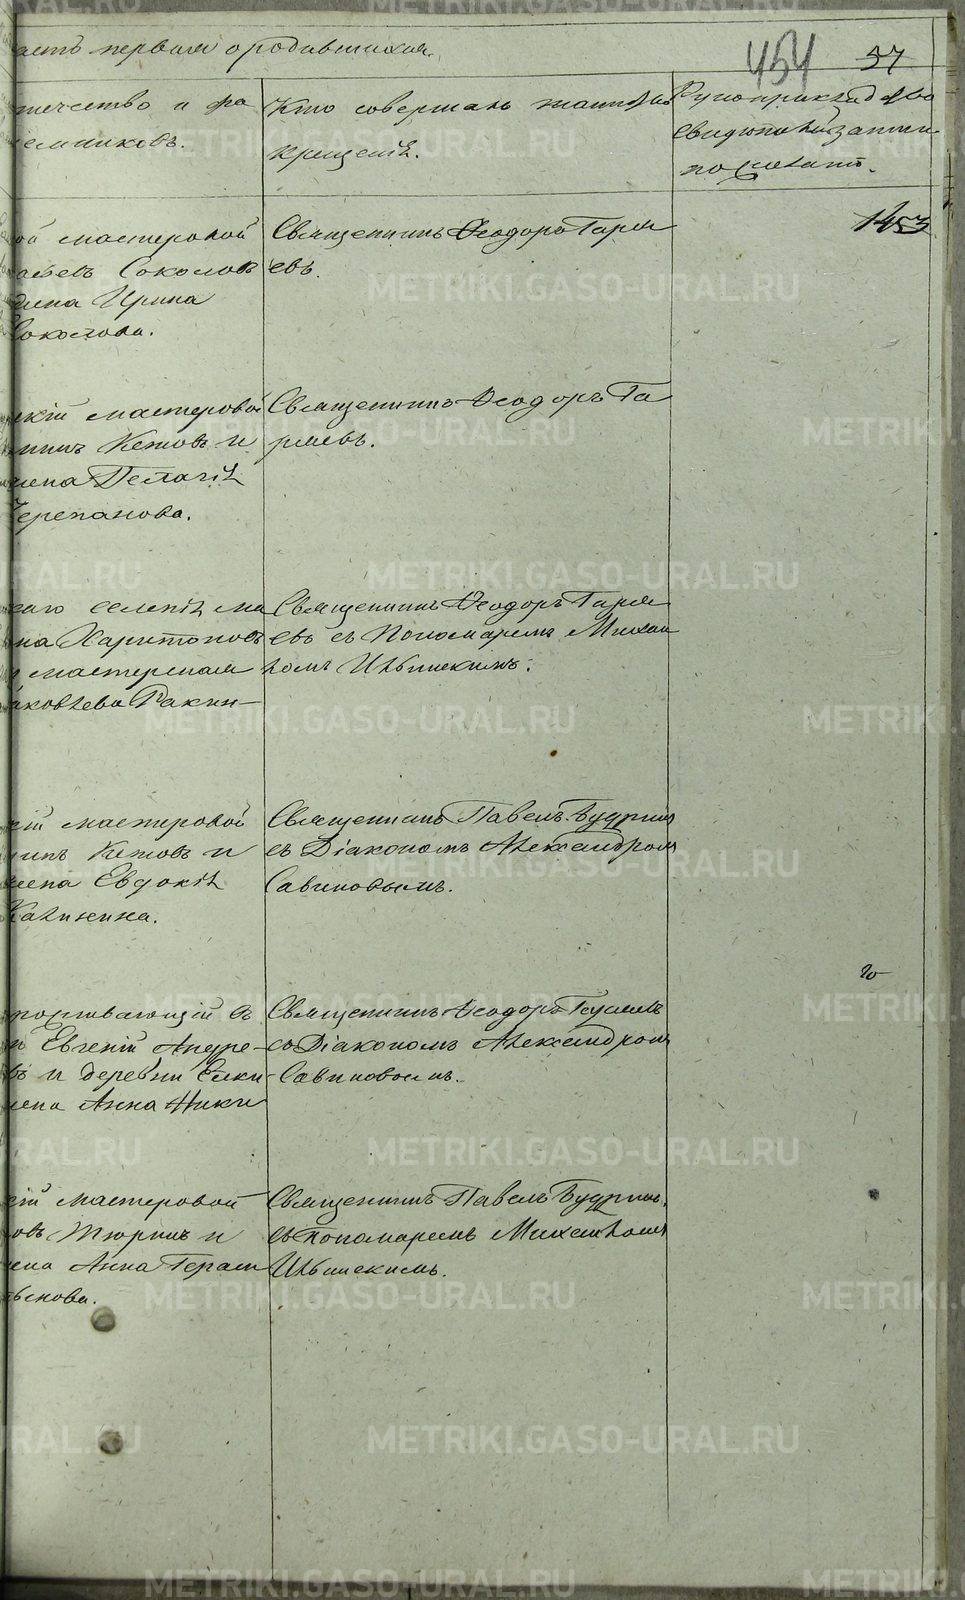 асть первая о родившихся.
454 57
течество и фа
емниковъ.
Кто совершалъ таинство
крещенія.
Рукоприкладство
свидѣтелей записи
по желанію.
ой мастеровой
Соколовъ
Ирина
Соколова.
Священникъ Ѳеодоръ Гаря
евъ.
1453
скій мастеровой
Кетовъ и
Пелагія
Черепанова.
Священникъ Ѳеодоръ Га
ряевъ.
селенія ма
на Харитоновъ
мастерская
аковлева Ракин-
Священникъ Ѳеодоръ Гаря
евъ съ Пономаремъ Михаи
ломъ Ильинскимъ.
кій мастеровой
Кетовъ и
Евдокія
Калинина.
Священникъ Павелъ Будринъ
съ Діакономъ Александромъ
Савиновымъ.
проживающій въ
Евгеній Андре-
въ и деревни
Анна Ники
Священникъ Ѳеодоръ
съ Діакономъ Александромъ
Савиновымъ.
кій мастеровой
овъ Тюринъ и
Анна Герасим
Священникъ Павелъ Будринъ,
съ пономаремъ Михаиломъ
Ильинскимъ.
METRIKI.GASO-URAL.RU